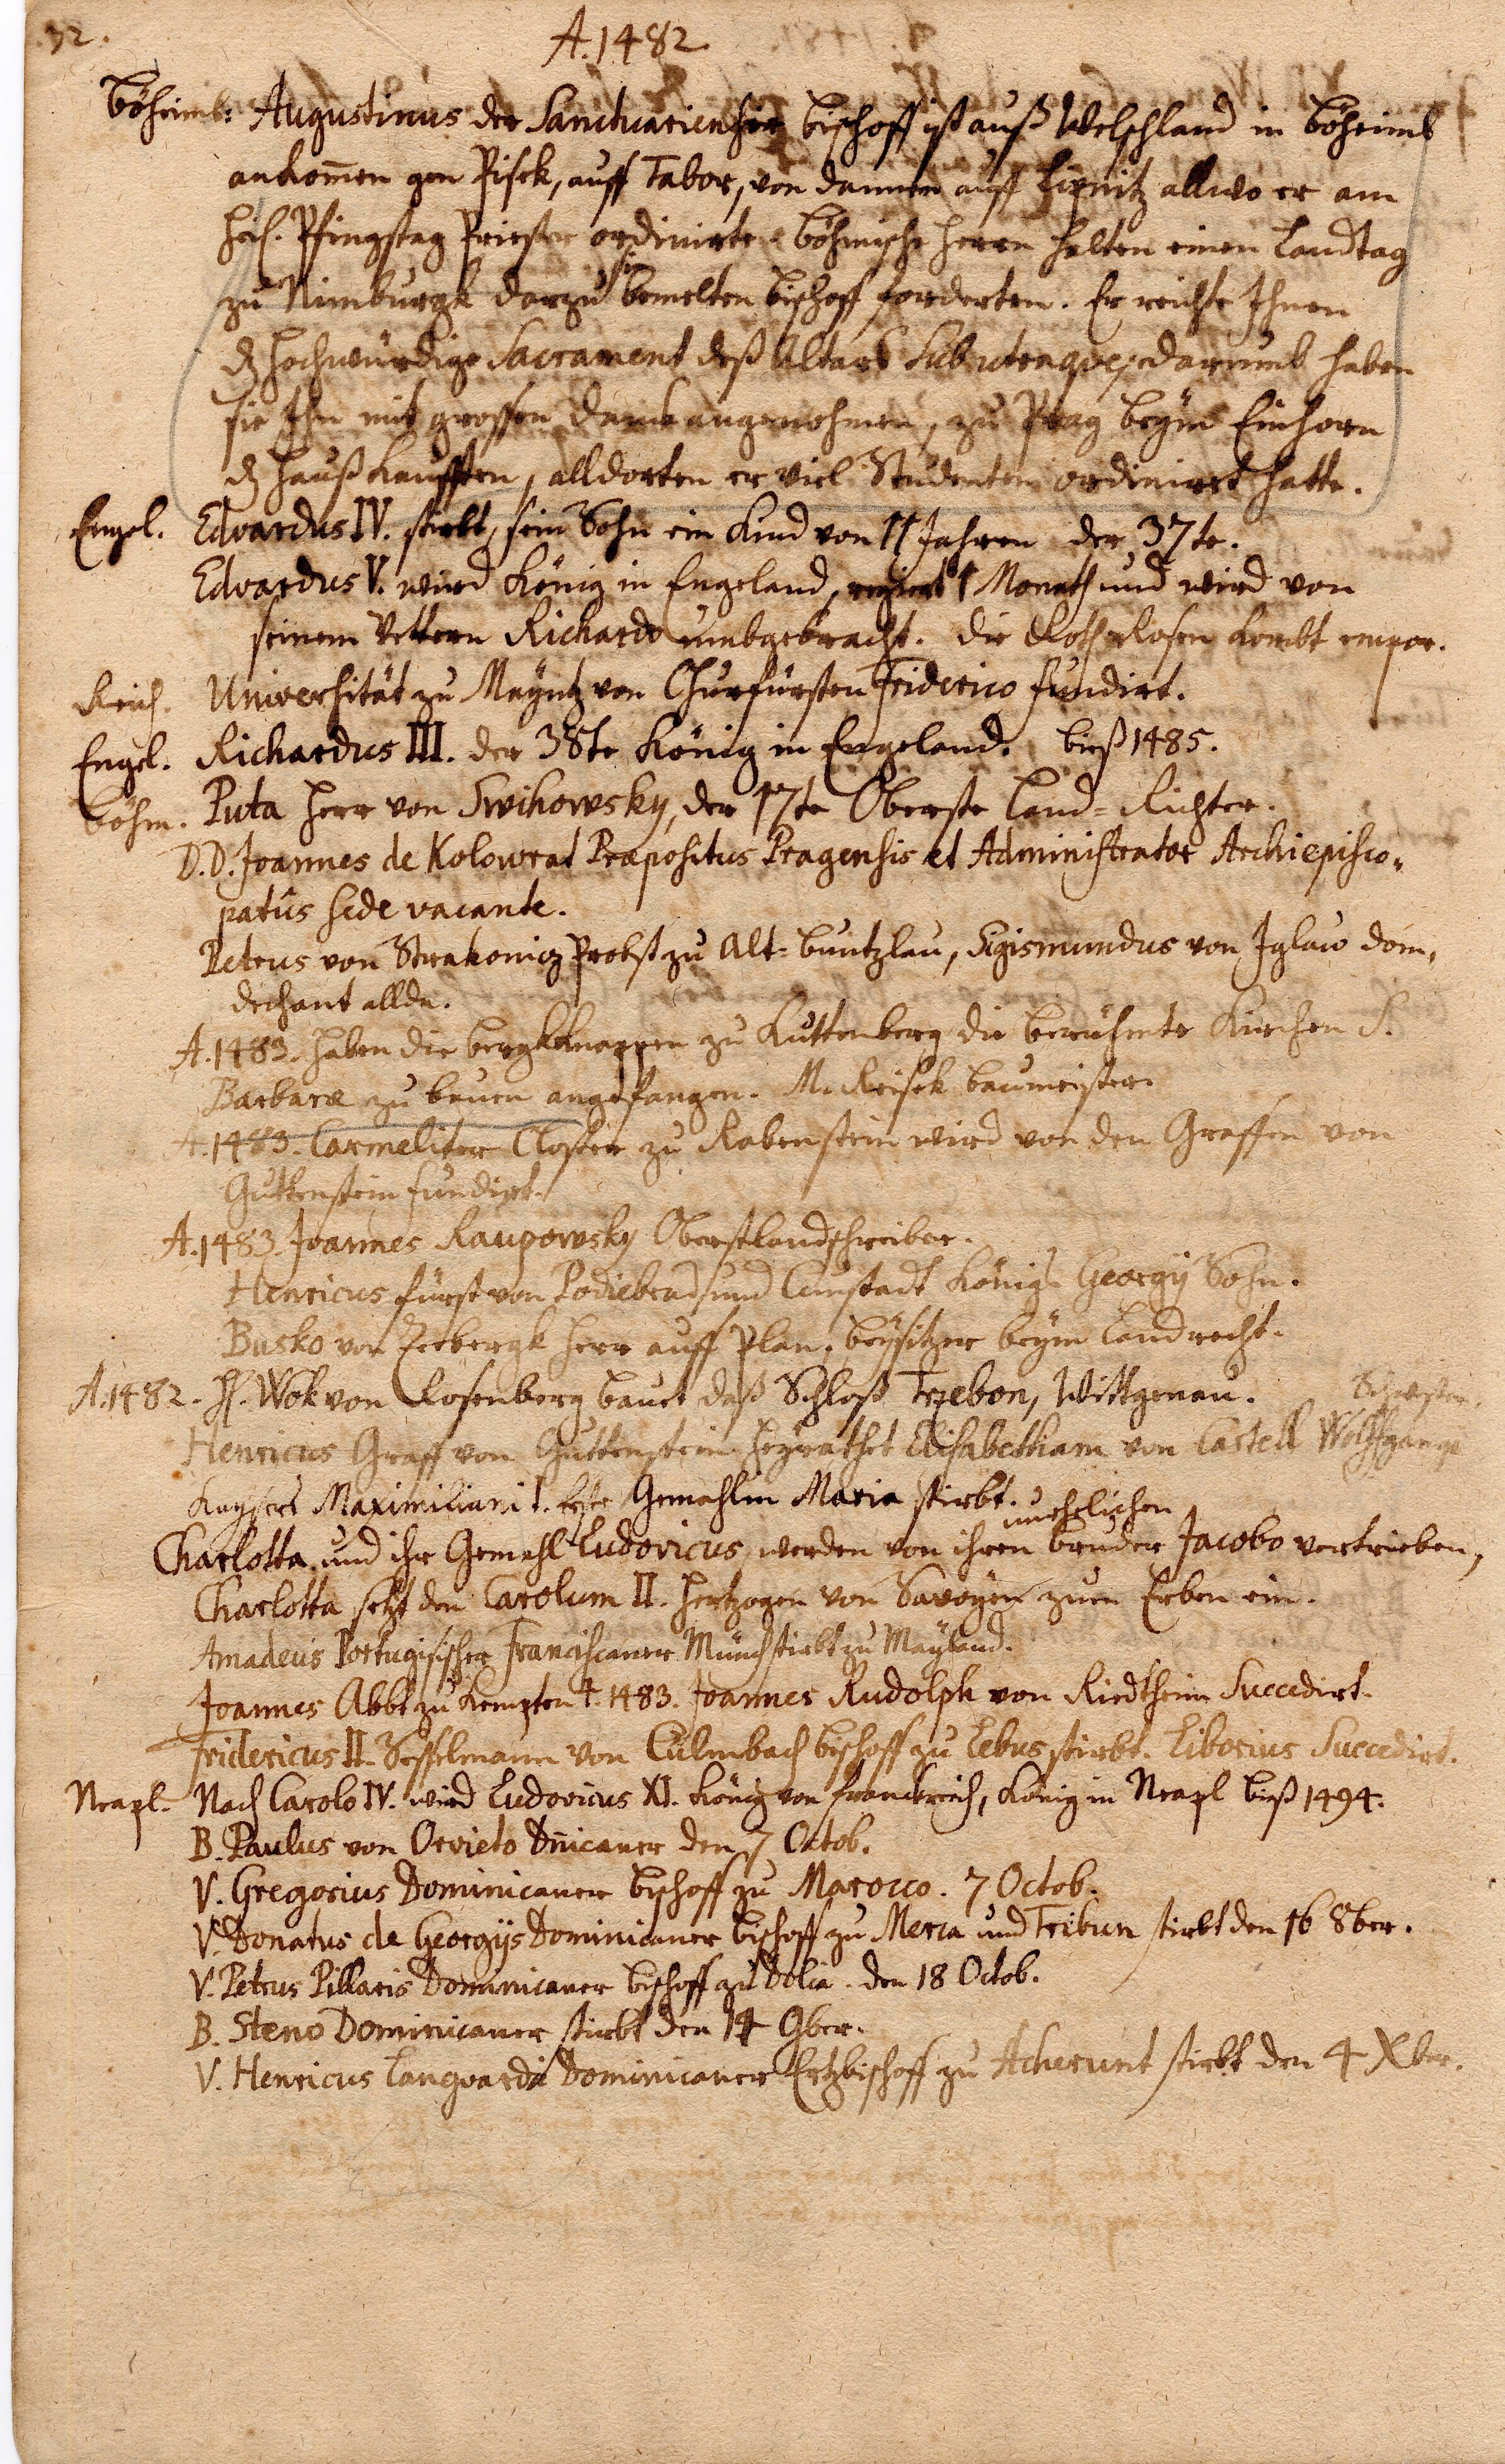 32.
A. 1482.
Böheimb: Augustinus der Sanctuariensie bischoff ist auß Welschland in Böheimb
ankom̄en gen Pisek, auff Tabor, von dannen auff Lipnitz allwo er am
heil. Pfingstag Priester ordinirte. Böhmische Herrn halten einen Landtag
zu Nimburgk darzu sie bemelten bischoff forderten. Er reichte Ihnen
dz hochwürdige Sacrament deß Altars Sub utraque; darumb haben
sie Ihn mit grossen danck angenohmen, zu Prag beÿm Einhorn
dz hauß kaufften, alldorten er viel Studenten ordinirt hatte.
Engel. Edvardus IV. stirbt, sein Sohn ein Kind von 11 Jahren der 37te.
Edvardus V. wird König in Engeland, regiert 1 Monath und wird von
seinem Vettern Richardo umbgebracht. die Rothe Rosen kombt empor.
Reich. Universität zu Mäyntz von Churfürsten Friderico fundirt.
Engel. Richardus III. der 38te König in Engeland. bieß 1485.
böhm. Puta Herr von Swihowsky, der 17te Oberste Land-Richter.
D.D. Joannes de Kolowrat Præpositus Pragensis et Administrator Archiepisco„
patûs Sede vacante.
Petrus von Strakonicz Probst zu Alt-buntzlau, Sigismundus von Iglaw dom,
dechant allda.
A. 1483. haben die bergkknappen zu Kuttenberg die berühmte Kirchen S.
Barbaræ zu bauen angefangen. M. Reisek baumeister.
A. 1483. Carmeliter Closter zu Rabenstein wird von den Graffen von
Guttenstein fundirt.
A. 1483. Joannes Raupowsky Oberstlandschreiber.
Henricus fürst von Podiebrad und Cunstadt Königs Georgÿ Sohn.
Busko von Seebergk Herr auff Plan, beÿsitzer beÿm Landrecht.
A. 1482. H. Wok von Rosenberg bauet daß Schloß Trzebon, Wittgenau.
Schwester.
Henricus Graff von Guttenstein heÿrathet Elisabetham von Castell Wolffgangi
Kaÿsers Maximiliani I. Erste Gemahlin Maria stirbt.
unehelichen
Charlotta und ihr Gemahl Ludovicus werden von ihren bruder Jacobo vertrieben,
Charlotta setzt den Carolum II. Hertzogen von Savoÿen zum Erben ein.
Amadeus Portugisischer Franciscaner Münch stirbt zu Maÿland.
Joannes Abbt zu Kempten †. 1483. Joannes Rudolph von Riedtheim Succedirt.
Fridericus II. Sesselmann von Culmbach bischoff zu Lebus stirbt. Liborius Succedirt.
Neapl. Nach Carolo IV. wird Ludovicus XI. König von Franckreich, König in Neapl bieß 1494.
B. Paulus von Orvieto Dn̄icaner den 7 Octob.
V. Gregorius Dominicaner bischoff zu Marocco. 7 Octob.
V. Donatus de Georgÿs Dominicaner bischoff zu Meria und Tribun stirbt den 16 8ber.
V. Petrus Pillaris Dominicaner bischoff zu Dolia. den 18 Octob.
B. Steno Dominicaner stirbt den 14 9ber.
V. Henricus Languardi Dominicaner Ertzbischoff zu Acherunt stirbt den 4 Xber.